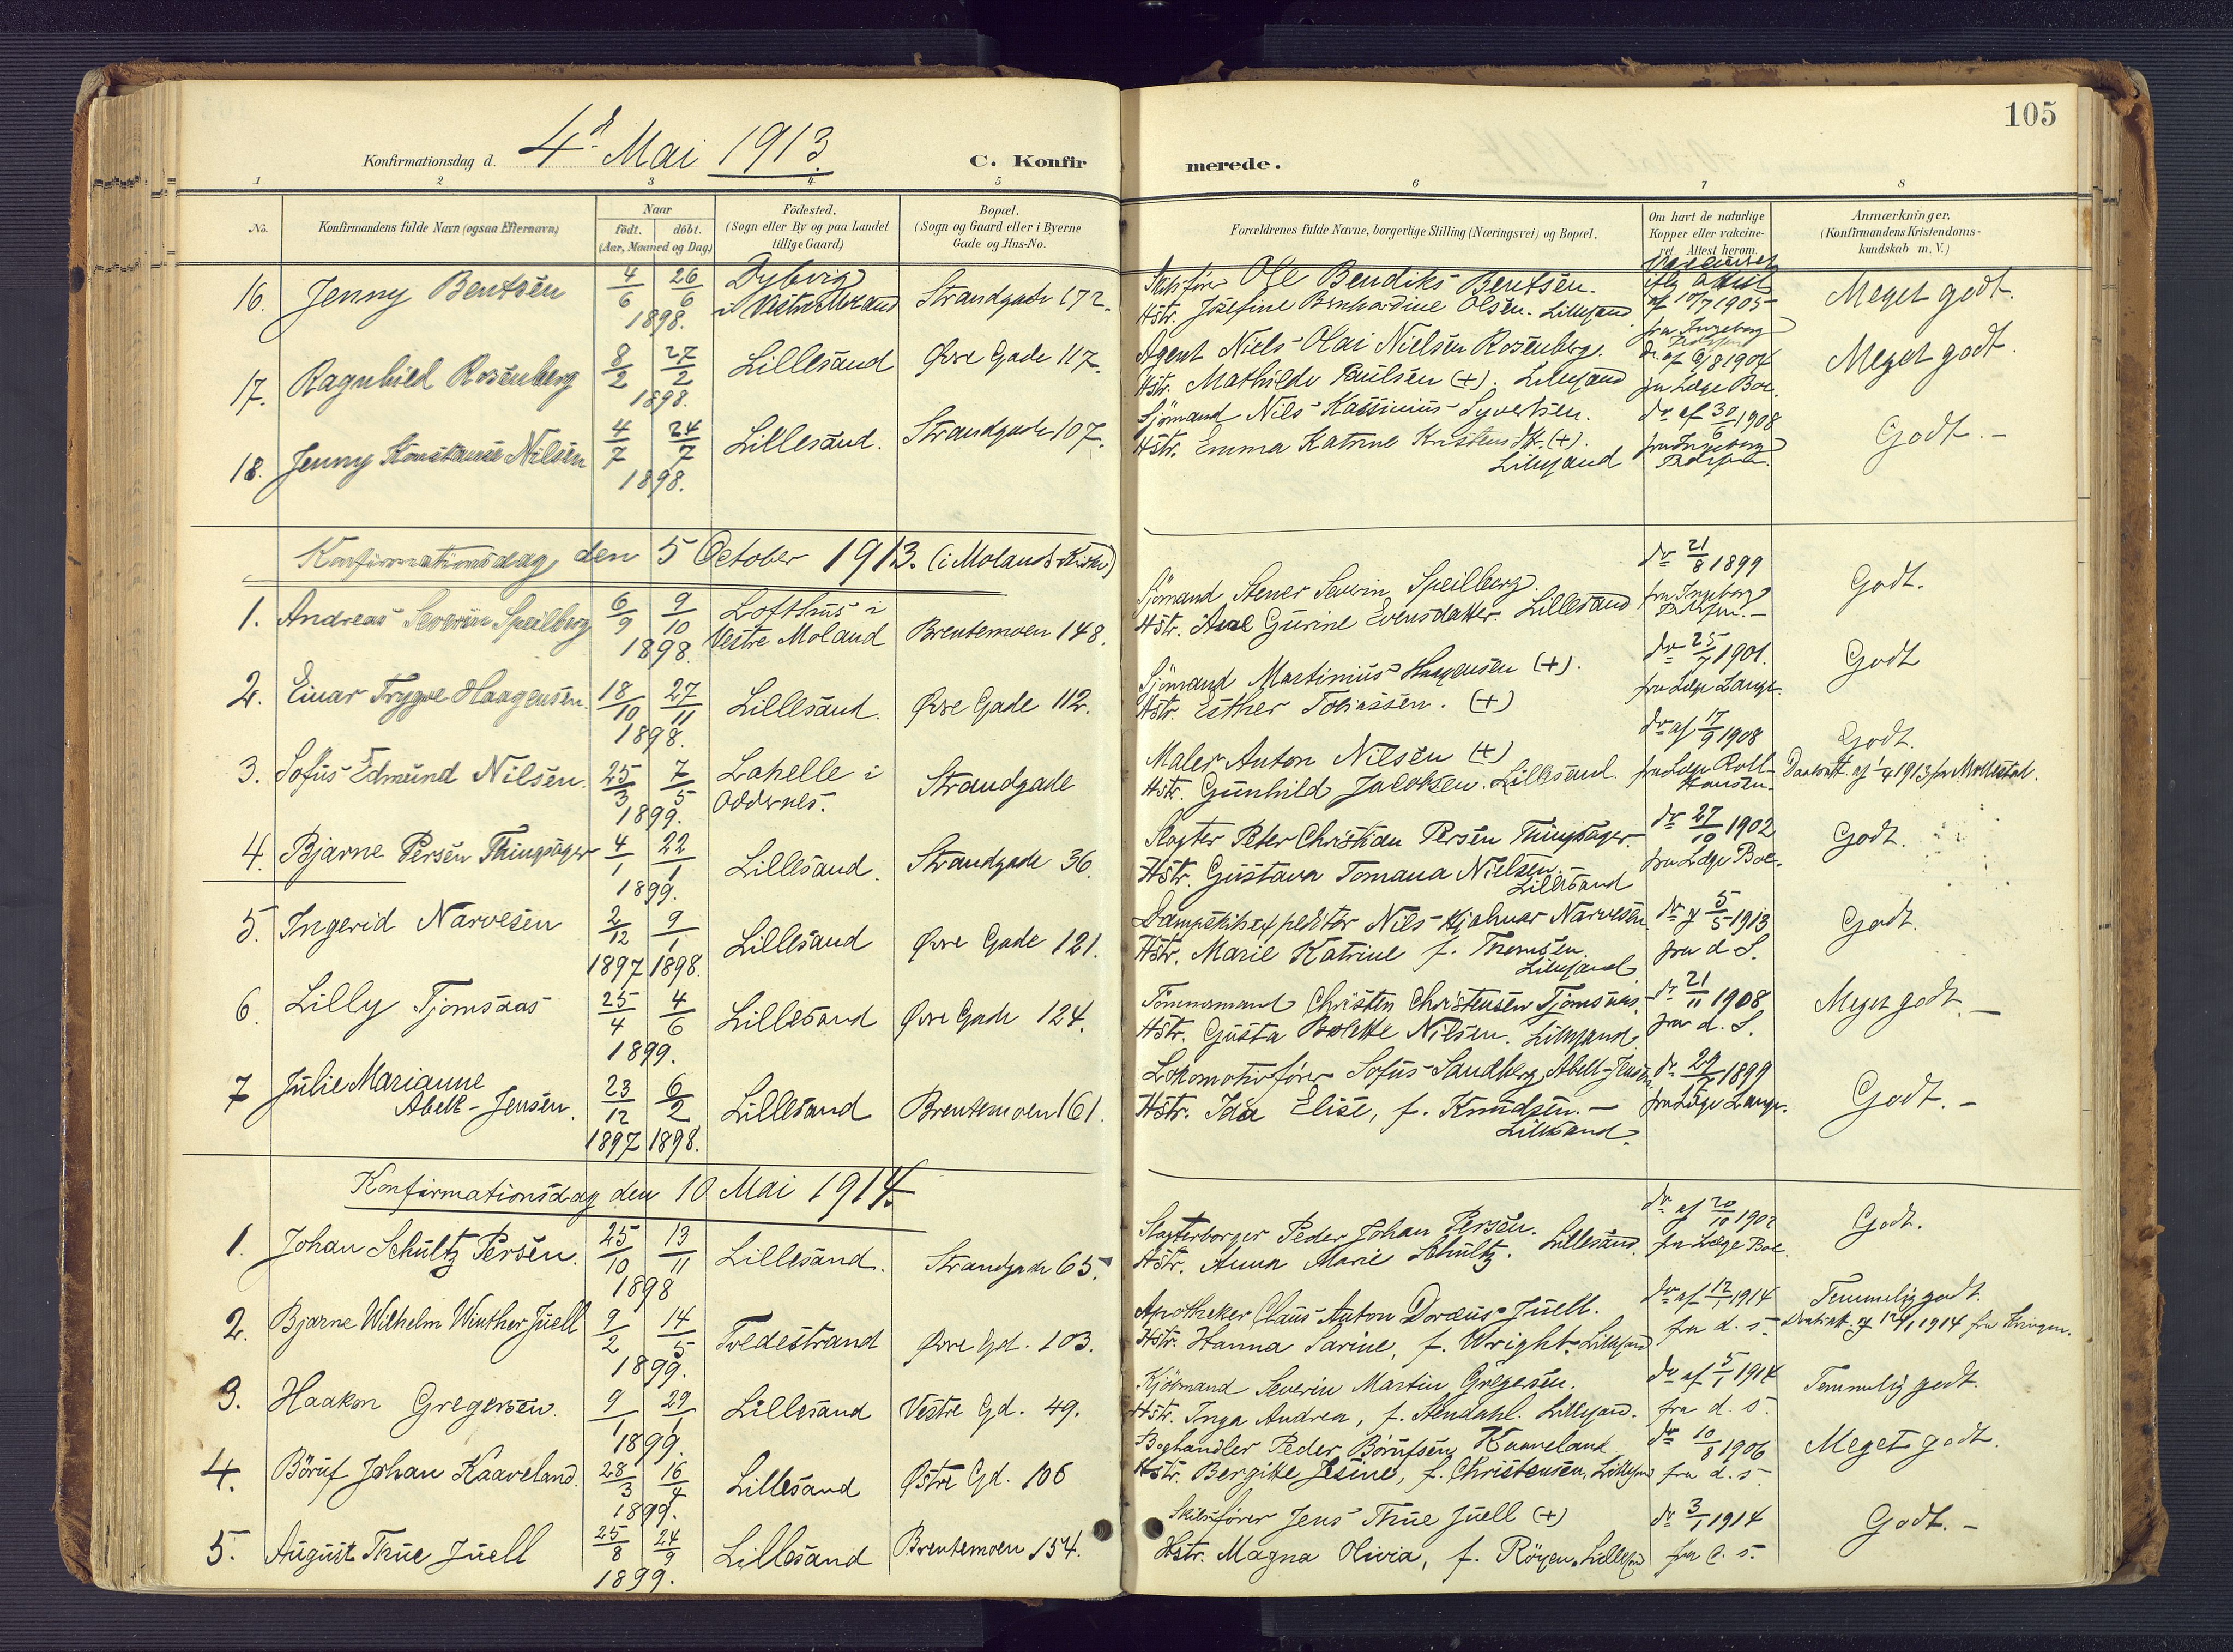 105
Konfirmationsdag d. 4d Mai 1913.
C. Konfirmerede.
1 2 3 4 5 6 7 8
No.
Konfirmandens fulde Navn (ogsaa Efternavn)
Naar
födt. döbt.
(Aar, Maaned og Dag)
Födested.
(Sogn eller By og paa Landet
tillige Gaard)
Bopæl.
(Sogn og Gaard eller i Byerne
Gade og Hus-No.
Forældrenes fulde Navne, borgerlige Stilling (Næringsvei) og Bopæl.
Om havt de naturlige
Kopper eller vakcine-
ret. Attest herom.
Anmærkninger.
(Konfirmandens Kristendoms-
kundskab m. V.)
16. Jenny Bentsen 4/6 26/6 1898. Dybvig
i Vestre Moland Strandgade 172.
Skibsfører Ole Bendiks Bentsen.
Hstr. Josefine Bernhardine Olsen. Lillesand
Vaccineret
iflg Attest
af 10/7 1905
fra Ingeborg
Meget godt.
17. Ragnhild Rosenberg 8/2 27/2 1898. Lillesand Øvre Gade 117.
Agent Niels Olai Nielsen Rosenberg.
Hstr. Mathilde Paulsen (+). Lillesand
do af 9/8 1904
fra Læge Boe.
Meget godt.
18. Jenny Konstanse Nilsen 4/7 24/7 1898. Lillesand. Strandgade 107.
Sjömand Nils Kassinius Syvertsen.
Hstr. Emma Katrine Kristensdtr. (+).
Lillesand
do af 30/6 1908
fra Ingeborg
Godt. -
Konfirmationsdag den 5 October 1913. (i Molands Kirke)
1. Andreas Severin Speilberg 6/9 9/10 1898. Lofthus i
Vestre Moland Brentemoen 148.
Sjömand Stener Severin Speilberg.
Hstr. Ane Gurine Evensdatter. Lillesand
do 21/8 1899
fra Ingeborg
Godt.
2. Einar Trygve Haagensen. 18/10 27/11 1898. Lillesand. Øvre Gade 112.
Sjömand Martinius Haagensen (+).
Hstr. Esther Tobiassen. (+)
do 25/7 1901.
fra Læge Lange.
Godt
3. Sofus Edmund Nilsen. 25/3 7/5 1899. Lahelle i
Oddernes. Strandgade
Maler Anton Nilsen (+)
Hstr. Gunhild Jacobsen. Lillesand.
do af 17/9 1908
fra Læge Roll-
Hansen.
Godt.
Daabsatt. af 1/4 1913 fra Mollestad.
4. Bjarne Persen Thingsager 4/1 22/1 1899. Lillesand. Strandgade 36.
Slagter Peter Christian Persen Thingsager.
Hstr. Gustava Tomana Nielsen.
Lillesand
do 27/10 1902
fra Læge Boe.
Godt.
5. Ingerid Narvesen 2/12 1897 9/1 1898. Lillesand Øvre Gade 121.
Dampskibsexpeditör Nils Hjalmar Narvesen
Hstr. Marie Katrine f. Thomsen.
Lillesand
do af 5/5 1913
fra d. S.
Godt.
6. Lilly Tjomsaas 25/4 4/6 1899. Lillesand Øvre Gade 124.
Tömmermand Christen Christensen Tjomsaas.
Hstr. Gusta Bolette Nilsen. Lillesand.
do 21/11 1908
fra d. S.
Meget godt. -
7 Julie Marianne
Abell-Jensen. 23/12 1897 6/2 1898. Lillesand Brentemoen 161.
Lokomotivförer Sofus Sandberg Abell-Jensen
Hstr. Ida Elise, f. Knudsen. -
Lillesand.
fra Læge Lange.
Godt. -
Konfirmationsdag den 10 Mai 1914.
1. Johan Schultz Persen. 25/10 13/11 1898 Lillesand. Strandgade 65.
Slagterborger Peder Johan Persen.
Hstr. Anna Marie Schultz. Lillesand.
do af 20/10 1902
fra Læge Boe.
Godt.
2. Bjarne Wilhelm Winther Juell 9/2 14/5 1899. Tvedestrand Øvre Gd. 103.
Apotheker Claus Anton Doræus Juell.
Hstr. Hanna Sarine, f. Wright. Lillesand
do af 12/1 1914
fra d. s.
Temmelig godt.
3. Haakon Gregersen. 9/1 29/1 1899. Lillesand Vestre Gd. 49.
Kjöbmand Severin Martin Gregersen.
Hstr. Inga Andrea, f. Stendahl. Lillesand.
do af 5/1 1914
fra d. s.
Temmelig godt.
4. Böruf Johan Kaaveland. 28/3 16/4 1899. Lillesand Østre Gd. 106
Boghandler Peder Börufsen Kaaveland
Hstr. Bergitte Jesine, f. Christensen, Lillesand
do 10/8 1906
fra d. s.
Meget godt.
5. August Thue Juell 25/8 24/9 1899. Lillesand Brentemoen 154.
Skibsförer Jens Thue Juell (+)
Hstr. Magna Olivia, f. Röyen. Lillesand
do 3/1 1914
fra d. s.
Godt. -